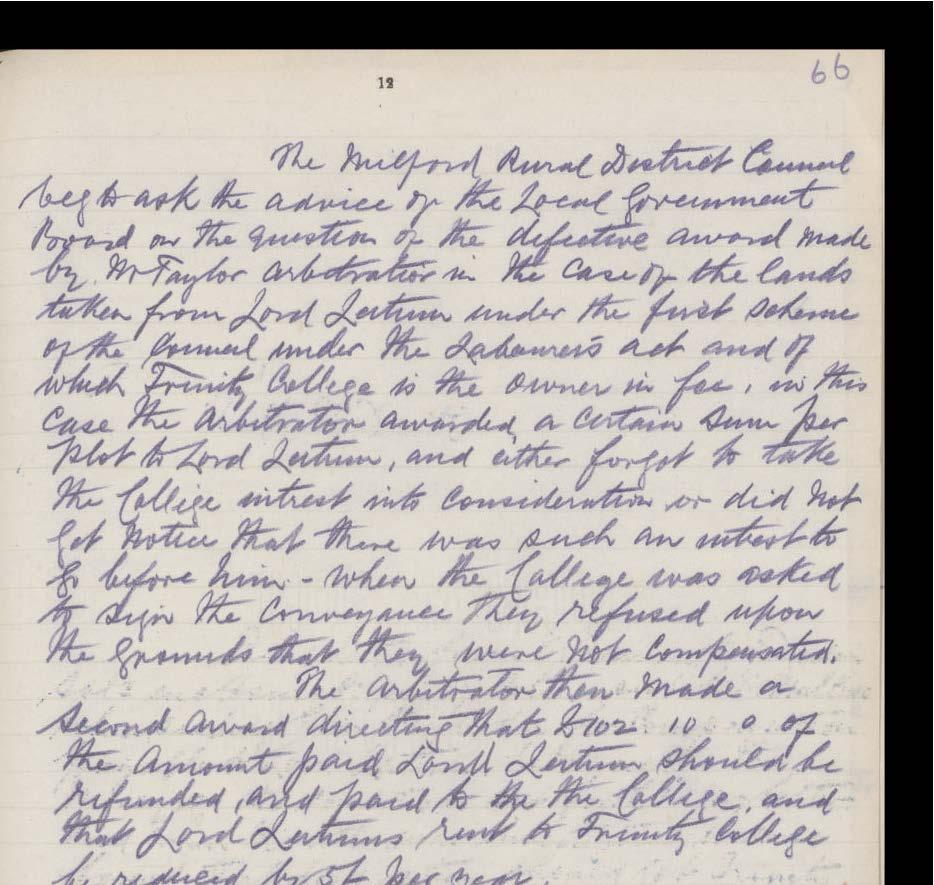 66
12
The Milford Rural District Council
beg to ask the advice of the Local Government
Board on the question of the defective award made
by Mr Taylor arbitrator in the case of the lands
taken from Lord Leitrim under the first scheme
of the Council under the Labourers act and of
which Trinity College is the owner in fee, in this
case the Arbitrator awarded, a certain sum per
plot to Lord Leitrim, and either forgot to take
the College intrest into consideration or did not
get notice that there was such an intrest to
go before him - when the College was asked
to sign the conveyance they refused upon
the grounds that they were not compensated.
The arbitrator then made a
second award directing that £102 10 0 of
the amount paid Lord Leitrim should be
refunded, and paid to the the College, and
that Lord Leitrims rent to Trinity College
be reduced by per year.